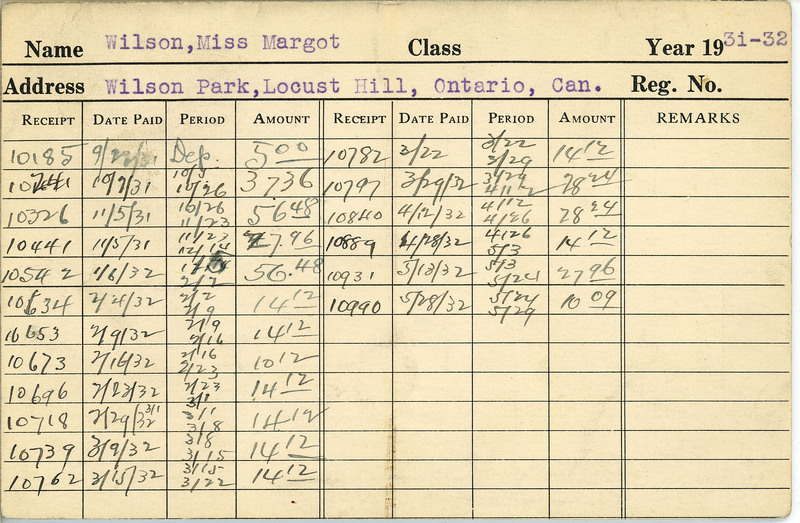 Name Wilson,Miss Margot Class Year 1931-32
Address Wilson Park,Locust Hill, Ontario, Can. Reg. No.
RECEIPT DATE PAID PERIOD AMOUNT RECEIPT DATE PAID PERIOD AMOUNT REMARKS
10185 Dep. 5 00 10782 3/22 3/22 3/29 14 12
10/7/31 10/5 10/26 37 36 10797 3/29/32 3/29 4/12 28 24
10326 11/5/31 10/26 11/23 56 48 10840 4/12/32 4/12 4/26 28 24
10441 11/5/31 11/23 12/14 10889 4/28/32 4/26 5/3 14 12
10542 1/6/32 2/2 56.48 10931 5/13/32 5/3 5/24 27 96
10634 2/4/32 2/2 2/9 14 12 10990 5/28/32 5/24 5/29 10 09
10653 2/9/32 2/9 2/16 14 12
10673 2/16/32 2/16 2/23 10 12
10696 2/23/32 2/23 3/1 14 12
10718 2/29/32 3/1 3/1 3/8 14 12
10739 3/9/32 3/8 3/15 14 12
10762 3/15/32 3/15 3/22 14 12